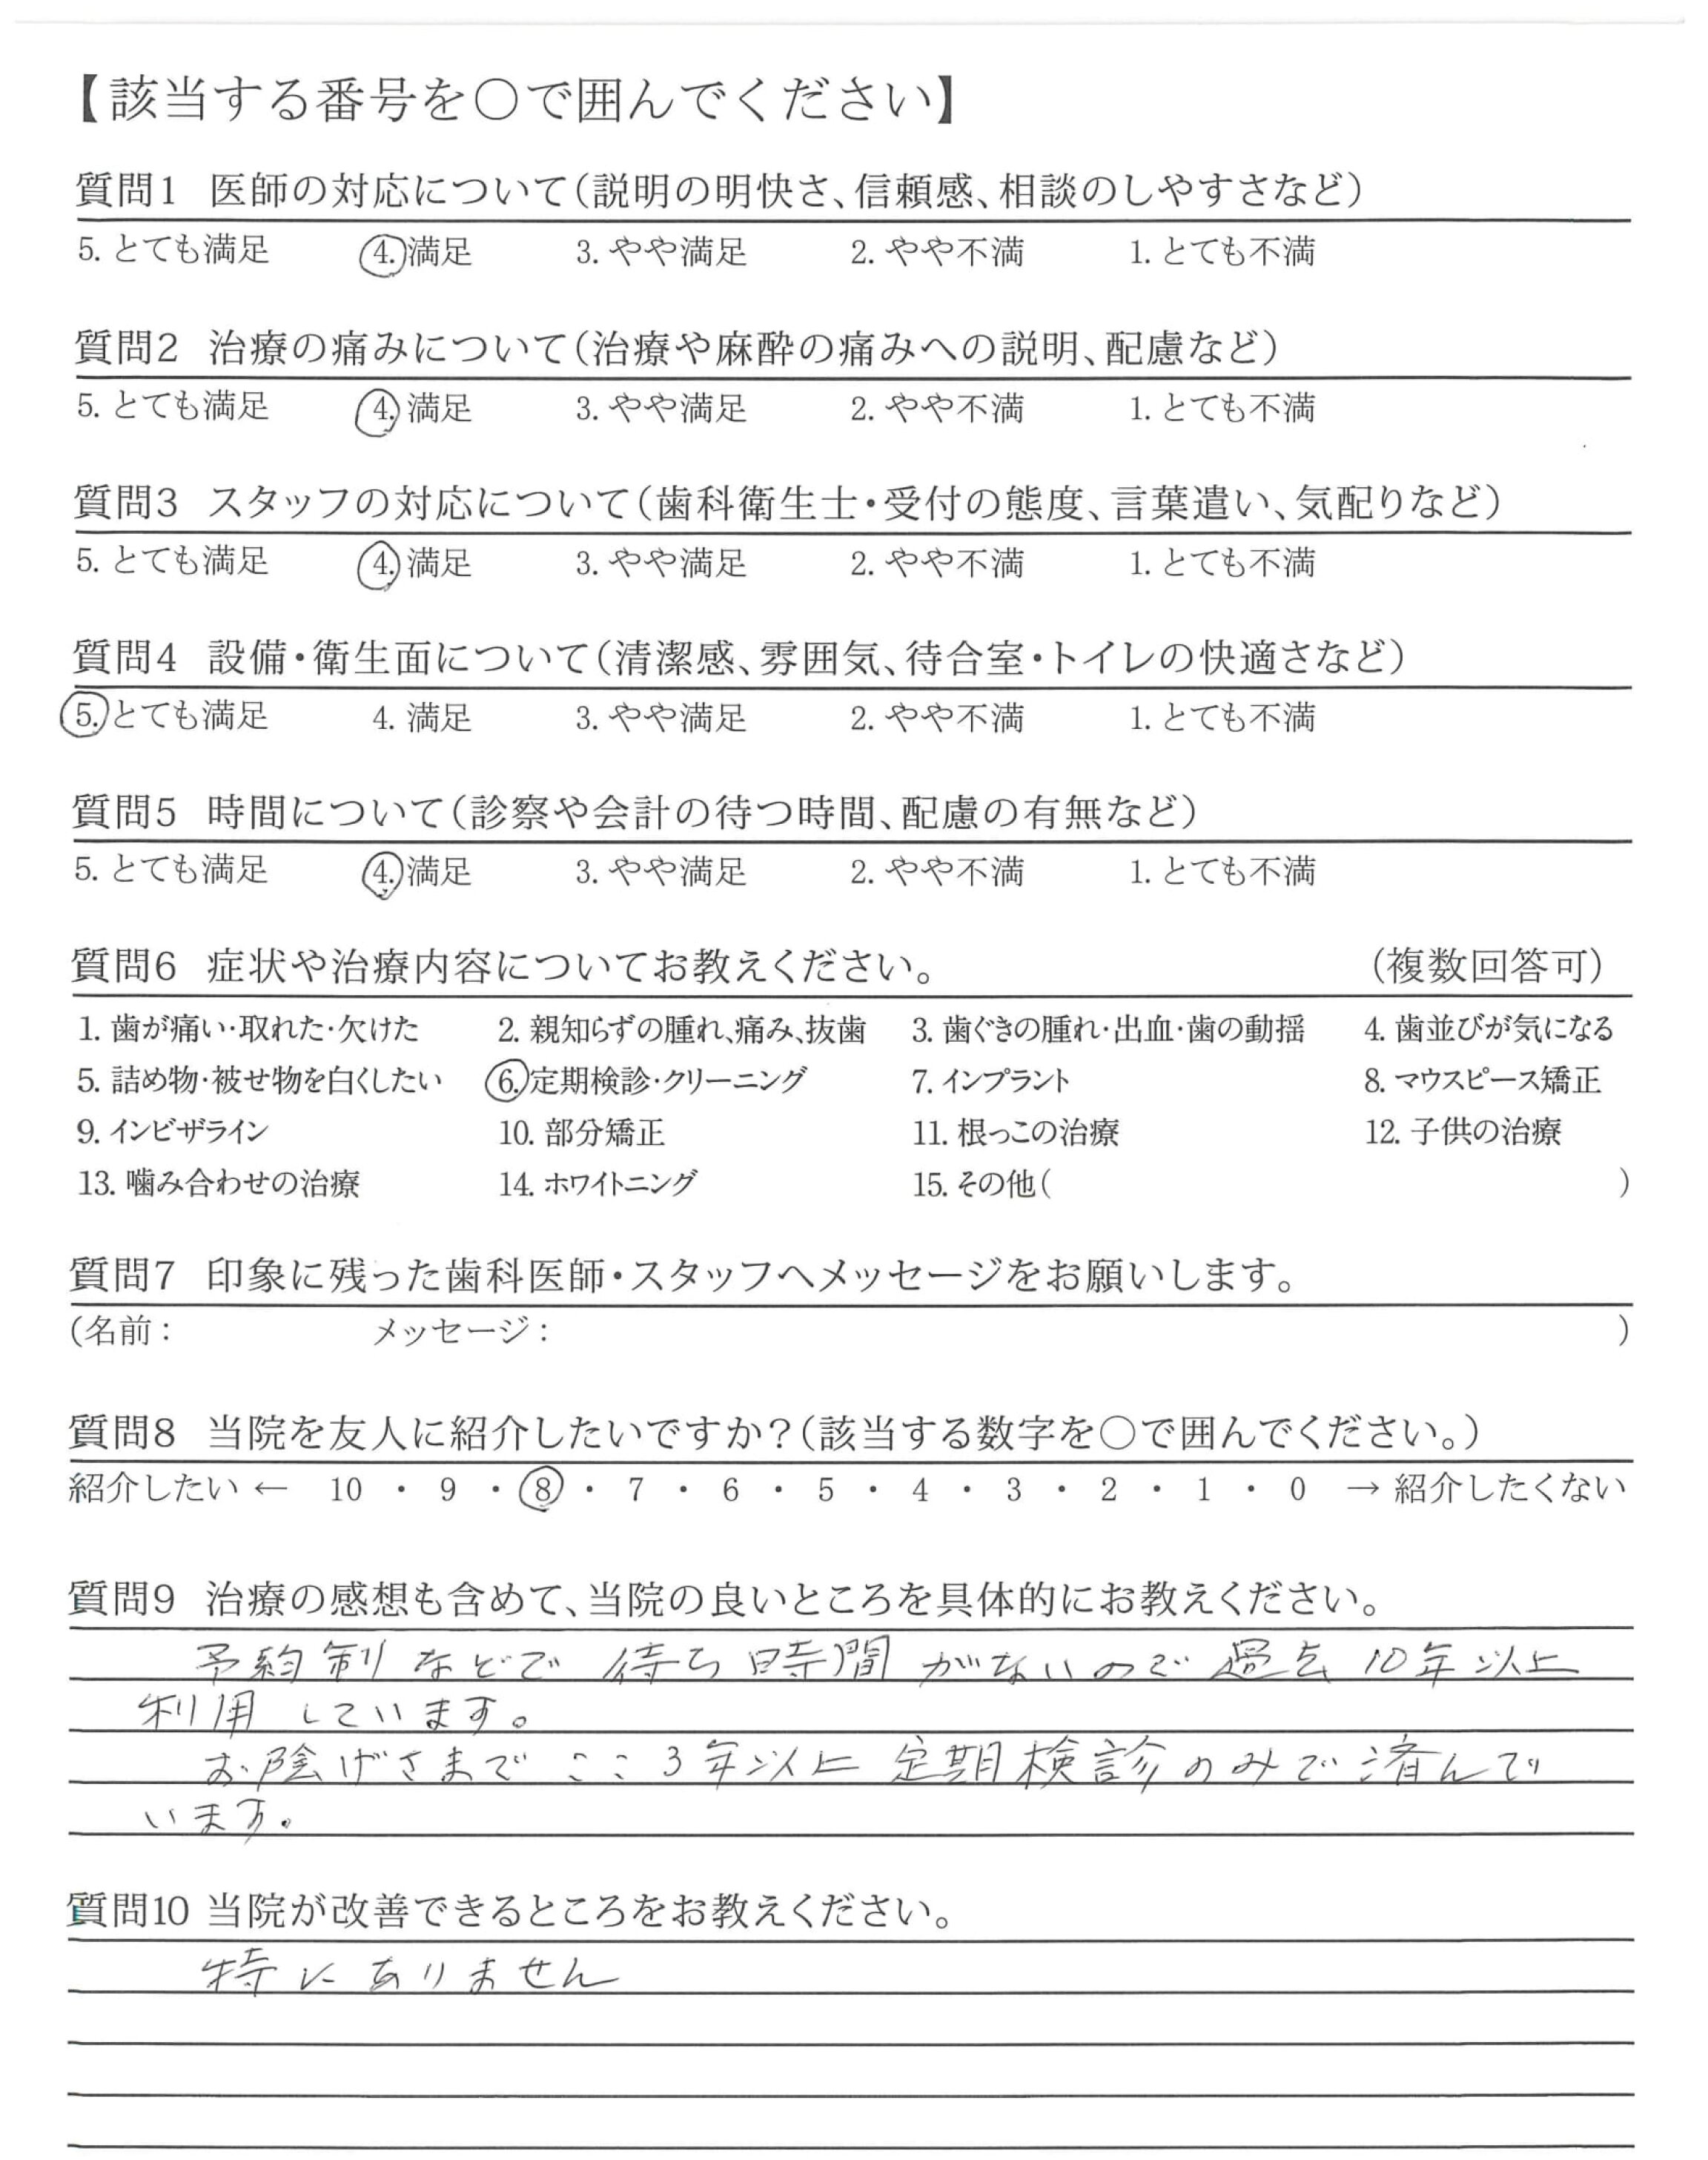 【該当する番号を○で囲んでください】
質問1 医師の対応について(説明の明快さ、信頼感、相談のしやすさなど)
5. とても満足 4. 満足 3. やや満足 2. やや不満 1. とても不満
質問2 治療の痛みについて(治療や麻酔の痛みへの説明、配慮など)
5. とても満足 4. 満足 3. やや満足 2. やや不満 1. とても不満
質問3 スタッフの対応について(歯科衛生士・受付の態度、言葉遣い、気配りなど)
5. とても満足 4. 満足 3. やや満足 2. やや不満 1. とても不満
質問4 設備・衛生面について(清潔感、雰囲気、待合室・トイレの快適さなど)
5. とても満足 4. 満足 3. やや満足 2. やや不満 1. とても不満
質問5 時間について(診察や会計の待つ時間、配慮の有無など)
5. とても満足 4. 満足 3. やや満足 2. やや不満 1. とても不満
質問6 症状や治療内容についてお教えください。 (複数回答可)
1. 歯が痛い・取れた・欠けた 2. 親知らずの腫れ、痛み、抜歯 3. 歯ぐきの腫れ・出血・歯の動揺 4. 歯並びが気になる
5. 詰め物・被せ物を白くしたい 6. 定期検診・クリーニング 7. インプラント 8. マウスピース矯正
9. インビザライン 10. 部分矯正 11. 根っこの治療 12. 子供の治療
13. 噛み合わせの治療 14. ホワイトニング 15. その他( )
質問7 印象に残った歯科医師・スタッフへメッセージをお願いします。
(名前: メッセージ: )
質問8 当院を友人に紹介したいですか?(該当する数字を○で囲んでください。)
紹介したい ← 10 ・ 9 ・ 8 ・ 7 ・ 6 ・ 5 ・ 4 ・ 3 ・ 2 ・ 1 ・ 0 → 紹介したくない
質問9 治療の感想も含めて、当院の良いところを具体的にお教えください。
予約制などで待ち時間がないので過去10年以上
利用しています。
お陰げさまでここ3年以上定期検診のみで済んで
います。
質問10 当院が改善できるところをお教えください。
特にありません